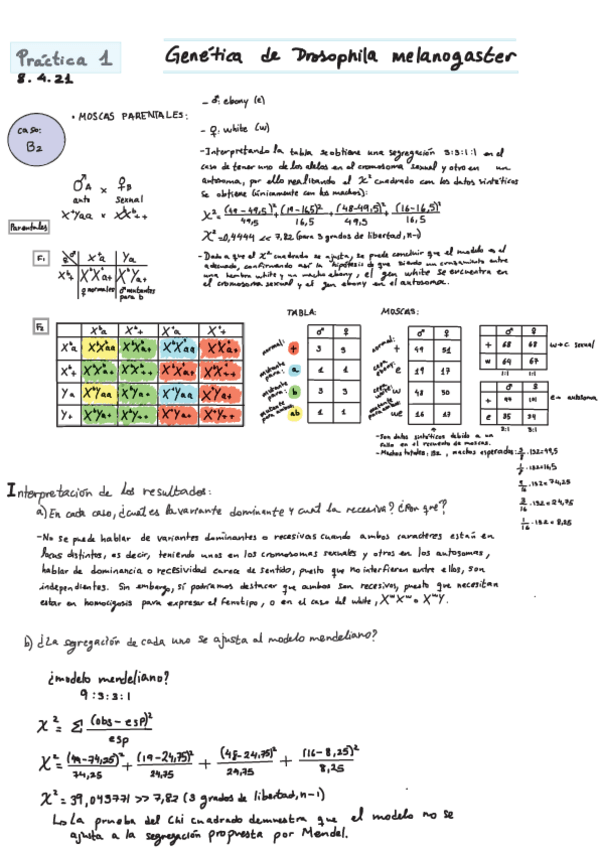 Práctica 1
Genética de Drosophila melanogaster
8.4.21
caso:
B2
• MOSCAS PARENTALES:
- ♂: ebony (e)
- ♀: white (w)
- Interpretando la tabla se obtiene una segregación 3:3:1:1 en el
caso de tener uno de los alelos en el cromosoma sexual y otro en un
autosoma, por ello realizando el X² cuadrado con los datos sintéticos
se obtiene (únicamente con los machos):
X²= (49-49,5)²/49,5 + (19-16,5)²/16,5 + (48-49,5)²/49,5 + (16-16,5)²/16,5
X²=0,4444 << 7,82 (para 3 grados de libertad, n-1)
- Dado a que el X² cuadrado se ajusta, se puede concluir que el modelo es el
adecuado, confirmando así la hipótesis de que siendo un cruzamiento entre
una hembra white y un macho ebony, el gen white se encuentra en
el cromosoma sexual y el gen ebony en el autosoma.
♂A × ♀B
auto sexual
Parentales
X⁺Yaa × XᵇXᵇ++
F1
X⁺a Ya
Xᵇ+ XᵇX⁺a+ XᵇYa+
♀ normales ♂ mutantes
para b
F2
Xᵇa Xᵇ+ X⁺a X⁺+
X⁺a X⁺Xᵇaa X⁺Xᵇa+ X⁺X⁺aa X⁺X⁺a+
Ya XᵇYaa XᵇYa+ X⁺Yaa X⁺Ya+
Y+ XᵇYa+ XᵇY++ X⁺Ya+ X⁺Y++
TABLA:
♂ ♀
normal: + 3 3
mutante para: a 1 1
mutante para: b 3 3
mutante para ambos ab 1 1
MOSCAS:
♂ ♀
normal: + 49 51
e 19 17
w 48 50
we 16 17
♂ ♀
+ 68 68
w 64 67
1:1 1:1
w→c sexual
♂ ♀
e 35 34
3:1 3:1
e→ autosoma
- Son datos sintéticos debido a un
fallo en el recuento de moscas.
- Machos totales: 132, machos esperados: 3/8 · 132=49,5
1/8 · 132=16,5
9/16 · 132=74,25
3/16 · 132=24,75
1/16 · 132=8,25
Interpretación de los resultados:
a) En cada caso, ¿cuál es la variante dominante y cuál la recesiva? ¿Por qué?
- No se puede hablar de variantes dominantes o recesivas cuando ambos caracteres están en
locus distintos, es decir, teniendo unos en los cromosomas sexuales y otros en los autosomas,
hablar de dominancia o recesividad carece de sentido, puesto que no interfieren entre ellos, son
independientes. Sin embargo, sí podríamos destacar que ambos son recesivos, puesto que necesitan
estar en homocigosis para expresar el fenotipo, o en el caso del white, XʷXʷ o XʷY.
b) ¿La segregación de cada uno se ajusta al modelo mendeliano?
¿modelo mendeliano?
9:3:3:1
X² = Σ (obs-esp)²/esp
X²= (49-74,25)²/74,25 + (19-24,75)²/24,75 + (48-24,75)²/24,75 + (16-8,25)²/8,25
X² = 39,043771 >> 7,82 (3 grados de libertad, n-1)
↳ La prueba del Chi cuadrado demuestra que el modelo no se
ajusta a la segregación propuesta por Mendel.